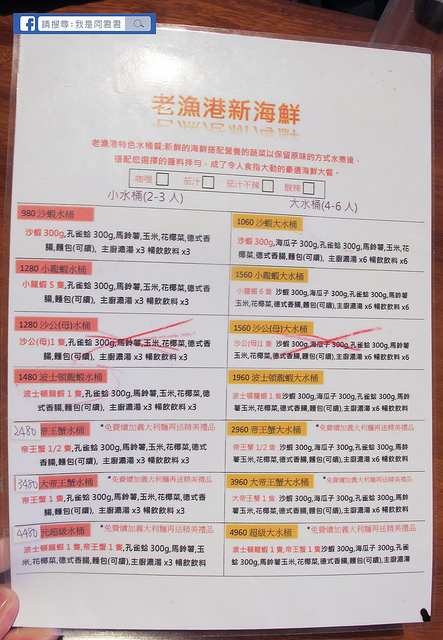 請搜尋:我是阿君君
老漁港新海鮮
老漁港特色水桶餐:新鮮的海鮮搭配營養的蔬菜以保留原味的方式水煮後,
搭配您選擇的醬料拌勻,成了令人食指大動的豪邁海鮮大餐。
咖哩 茄汁 茄汁不辣 酸辣
小水桶(2-3 人)
大水桶(4-6 人)
980 沙蝦水桶
沙蝦 300g,孔雀蛤 300g,馬鈴薯,玉米,花椰菜,德式香
腸,麵包(可續), 主廚濃湯 x3 暢飲飲料 x3
1060 沙蝦大水桶
沙蝦 300g,海瓜子 300g,孔雀蛤 300g,馬鈴薯,玉米,花
椰菜,德式香腸,麵包(可續), 主廚濃湯 x6 暢飲飲料 x6
1280 小龍蝦水桶
小龍蝦 5 隻,孔雀蛤 300g,馬鈴薯,玉米,花椰菜,德式香
腸,麵包(可續), 主廚濃湯 x3 暢飲飲料 x3
1560 小龍蝦大水桶
小龍蝦 6 隻 沙蝦 300g,海瓜子 300g,孔雀蛤 300g,馬鈴薯
玉米,花椰菜,德式香腸,麵包(可續),主廚濃湯 x6 暢飲飲料 x6
1280 沙公(母)水桶
沙公(母)1 隻,孔雀蛤 300g,馬鈴薯,玉米,花椰菜,德式香
腸,麵包(可續), 主廚濃湯 x3 暢飲飲料 x3
1560 沙公(母)大水桶
沙公(母)1 隻 沙蝦 300g,海瓜子 300g,孔雀蛤 300g,馬鈴薯
玉米,花椰菜,德式香腸,麵包(可續),主廚濃湯 x6 暢飲飲料 x6
1480 波士頓龍蝦水桶
波士頓龍蝦 1 隻,孔雀蛤 300g,馬鈴薯,玉米,花椰菜,德
式香腸,麵包(可續), 主廚濃湯 x3 暢飲飲料 x3
1960 波士頓龍蝦大水桶
波士頓龍蝦 1 隻 沙蝦 300g,海瓜子 300g,孔雀蛤 300g,馬鈴
薯玉米,花椰菜,德式香腸,麵包(可續),主廚濃湯 x6 暢飲飲料 x6
2480 帝王蟹水桶 *免費續加義大利麵再送精美禮品
帝王蟹 1/2 隻,孔雀蛤 300g,馬鈴薯,玉米,花椰菜,德式
香腸,麵包(可續), 主廚濃湯 x3 暢飲飲料 x3
2960 帝王蟹大水桶 *免費續加義大利麵再送精美禮品
帝王蟹 1/2 隻 沙蝦 300g,海瓜子 300g,孔雀蛤 300g,馬鈴
薯玉米,花椰菜,德式香腸,麵包(可續),主廚濃湯 x6 暢飲飲料
3480 大帝王蟹水桶 *免費續加義大利麵再送精美禮品
帝王蟹 1 隻,孔雀蛤 300g,馬鈴薯,玉米,花椰菜,德式香
腸,麵包(可續), 主廚濃湯 x3 暢飲飲料 x3
3960 大帝王蟹大水桶 *免費續加義大利麵再送精美禮品
大帝王蟹 1 隻 沙蝦 300g,海瓜子 300g,孔雀蛤 300g,馬鈴
薯玉米,花椰菜,德式香腸,麵包(可續),主廚濃湯 x6 暢飲飲料
4480 元超級水桶 *免費續加義大利麵再送精美禮品
波士頓龍蝦 1 隻,帝王蟹 1 隻,孔雀蛤 300g,馬鈴薯,玉
米,花椰菜,德式香腸,麵包(可續), 主廚濃湯 x3 暢飲飲料
4960 超級大水桶 *免費續加義大利麵再送精美禮品
波士頓龍蝦 1 隻,帝王蟹 1 隻沙蝦 300g,海瓜子 300g,孔雀
蛤 300g,馬鈴薯玉米,花椰菜,德式香腸,麵包(可續),主廚濃湯